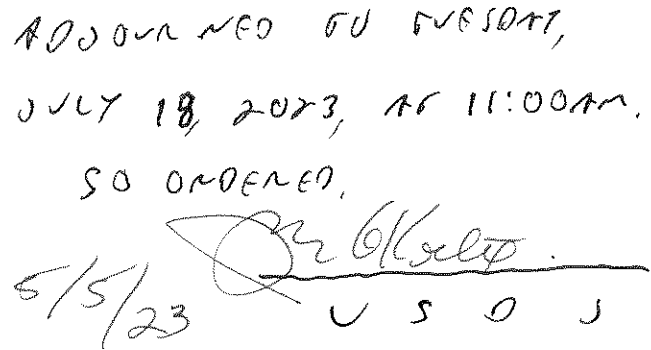 ADJOURNED TO TUESDAY,
JULY 18, 2023, AT 11:00AM.
SO ORDERED.
5/5/23
USDJ